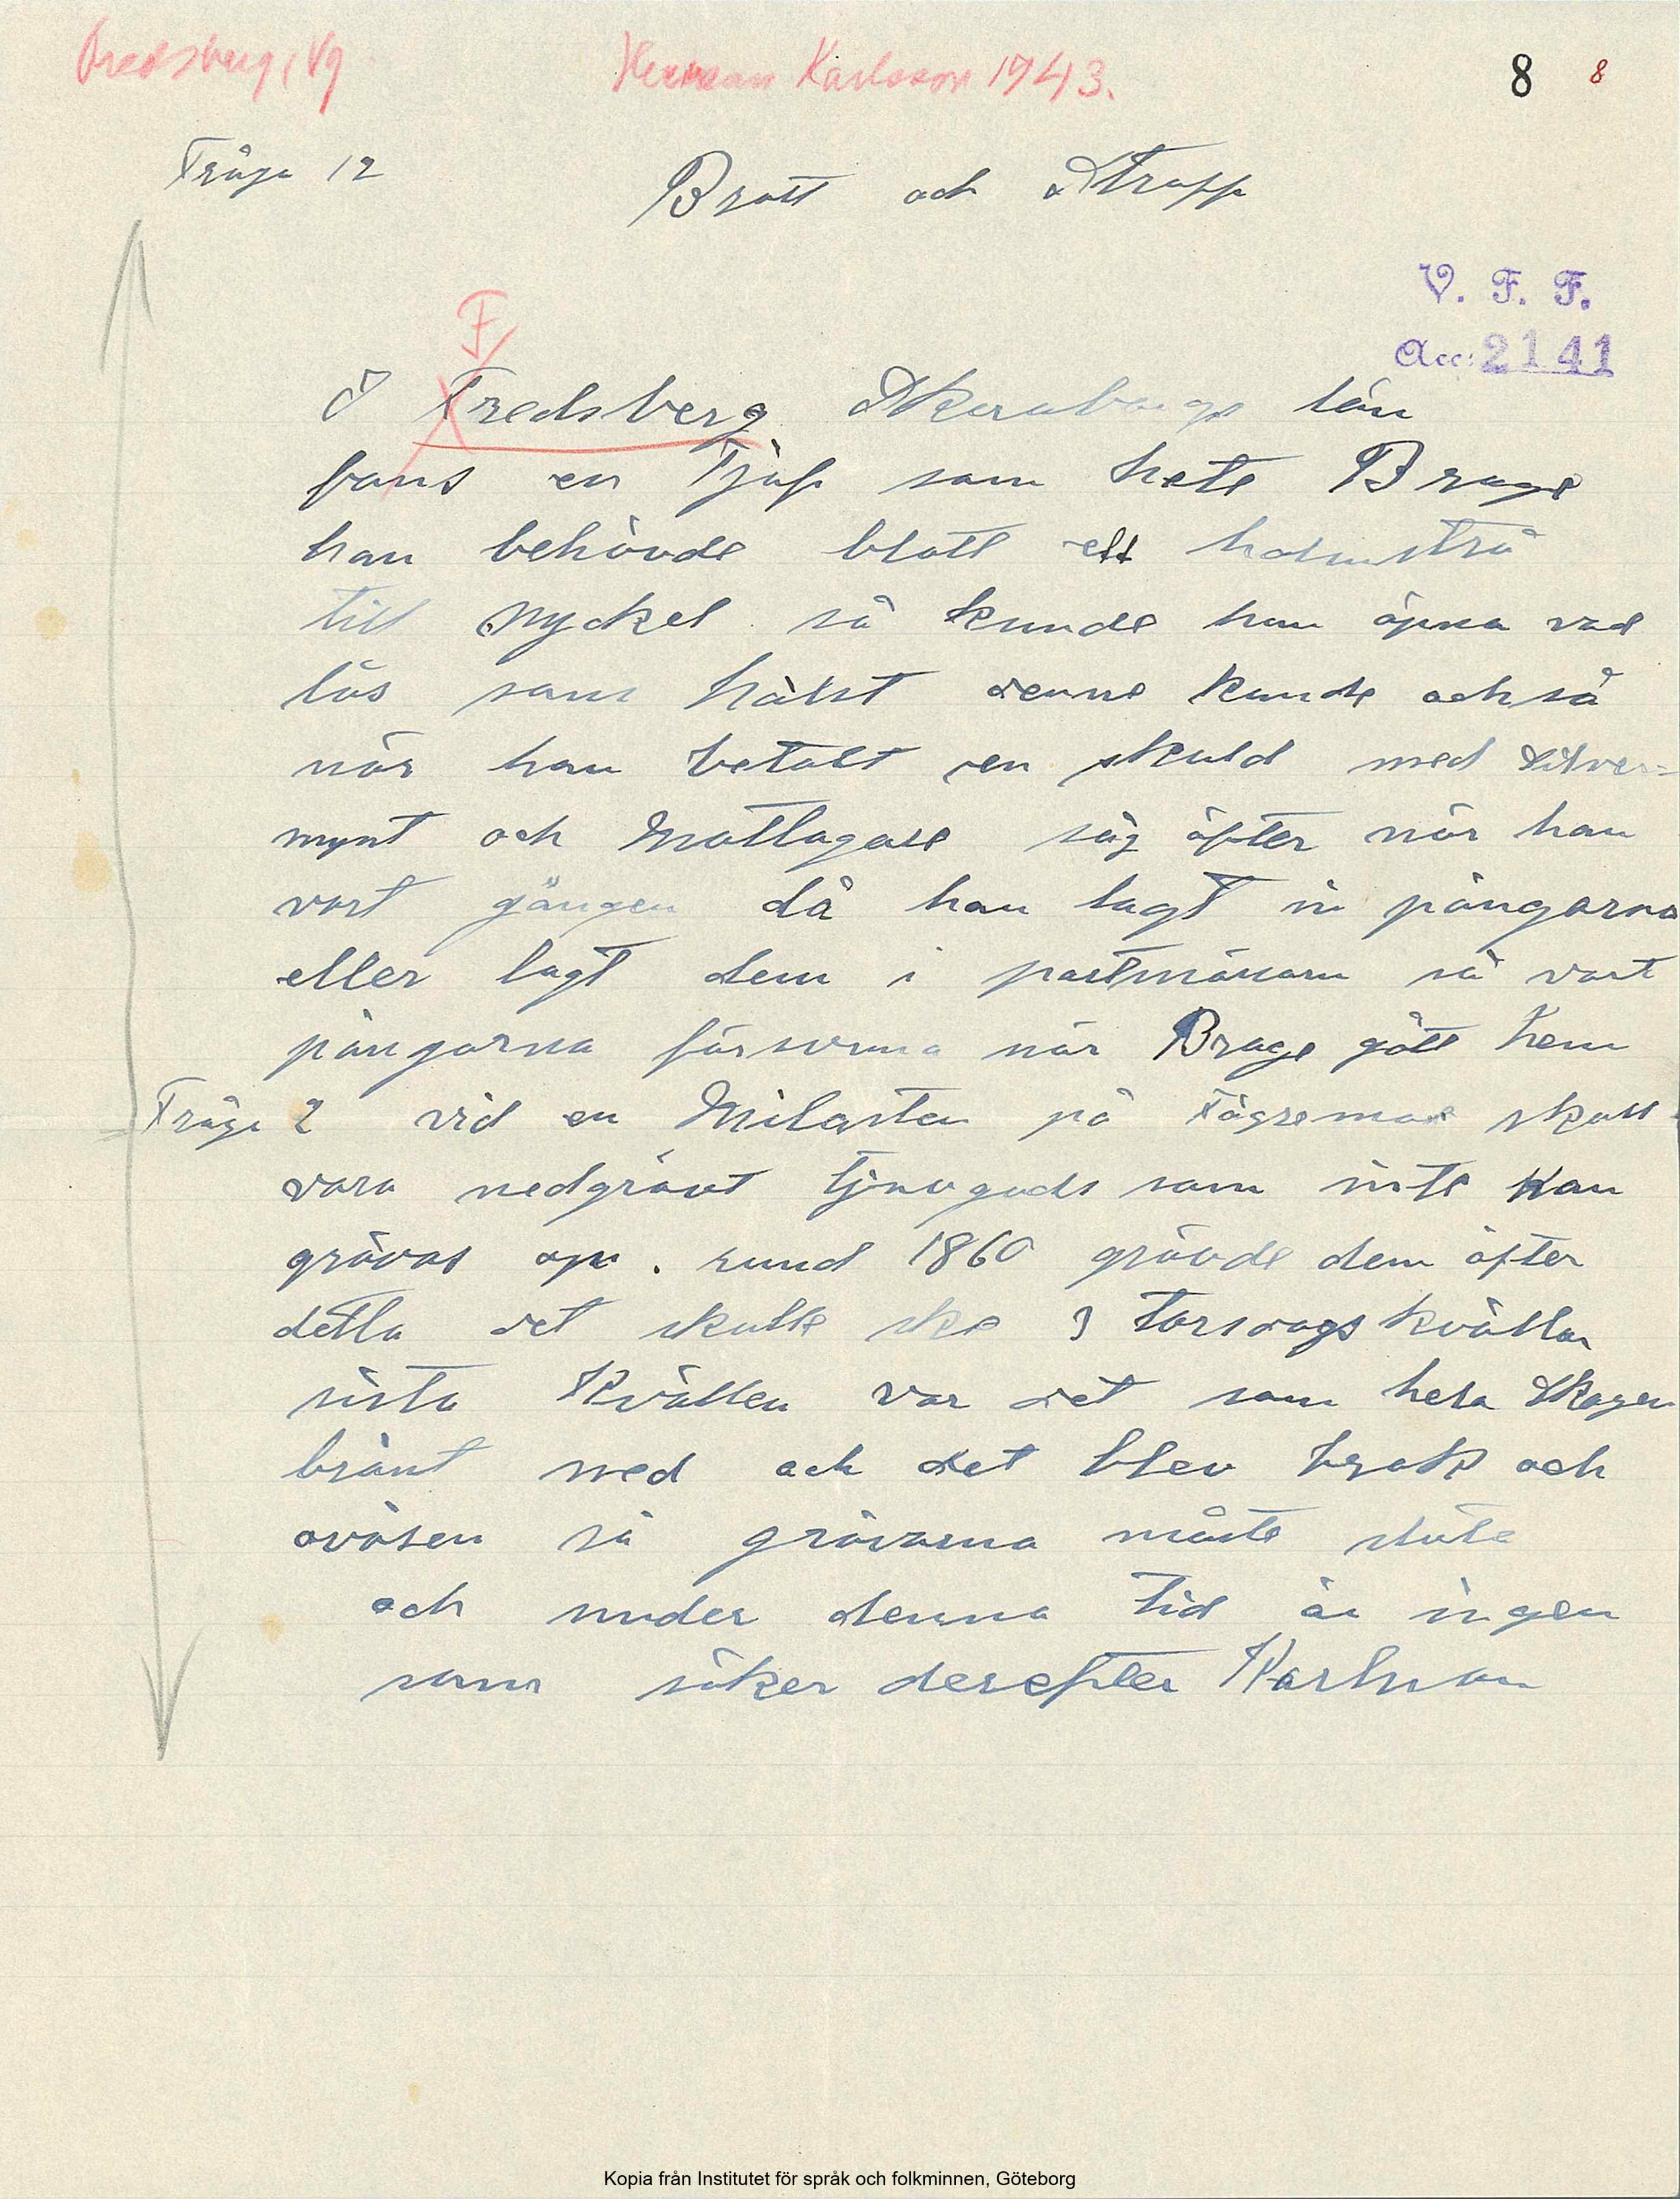 Fredsberg, Vg
Herman Karlsson 1943.
8 8
Fråga 12
Brott och Straff
V. F. F.
Acc: 2141
F
I Fredsberg Skaraborgs län
fans en Tjuf som hete Brage
han behövde blott ett halmstrå
till nyckel så kunde han öpna vad
lås som hälst denne kunde också
när han betalt en skuld med Silver=
mynt och Mottagare såg äfter när han
vart gången då han lagt in pängarna
eller lagt dem i portmänän så vart
pängarna försvuna när Brage gått hem
Fråga 2 vid en Milasten på Fägremo skall
vara nedgrävt tjuvgods som inte kan
grävas op. rund 1860 grävde dem äfter
detta det skulle ske 3 Torsdagskvällar
sista Kvällen var det som hela Skogen
bränt ned och det blev brak och
oväsen så grävarna måste sluta
och under denna tid är ingen
som söker derefter Karlson
Kopia från Institutet för språk och folkminnen, Göteborg